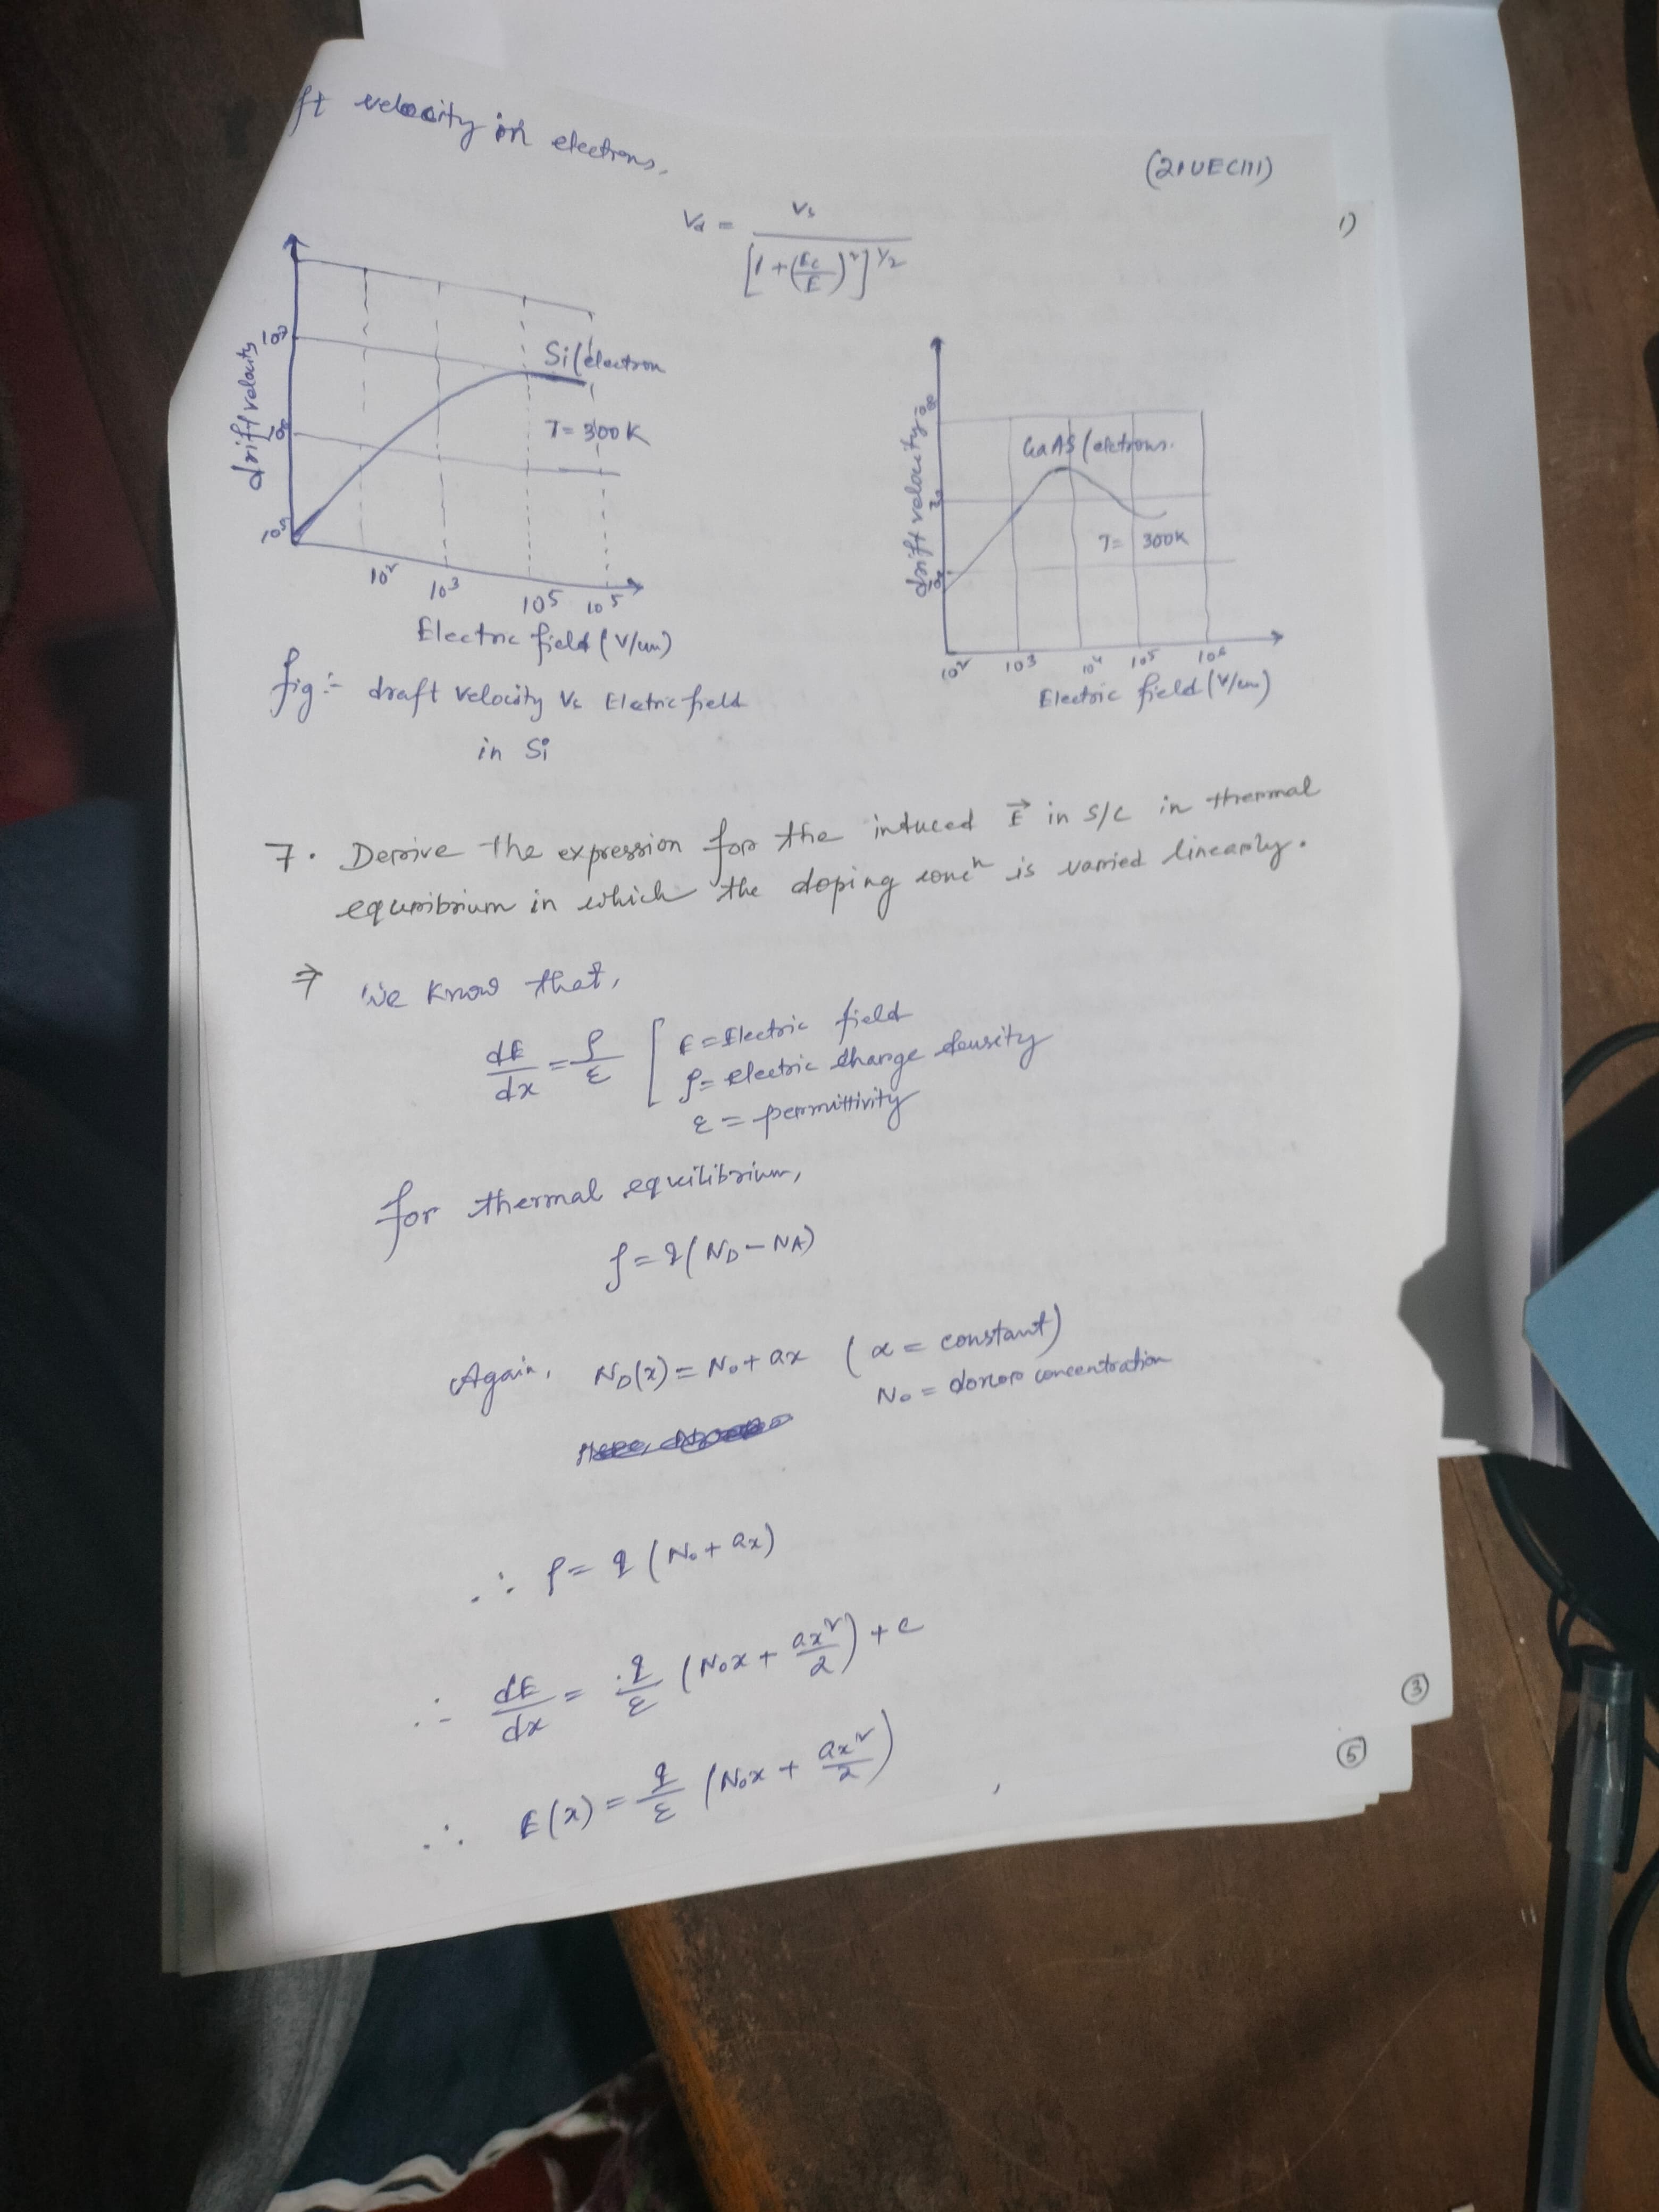 ft velocity in electrons,
(21UEC111)
1)
Vd = Vs / [1 + (Ec/E)²]^1/2
drift velocity
Si (electron
T = 300 K
10⁵
10² 10³ 10⁵ 10⁵
Electric field (V/cm)
fig:- draft velocity Vs Eletric field
in Si
drift velocity
GaAS (eletrons.
T = 300K
10² 10³ 10⁴ 10⁵ 10⁶
Electric field (V/cm)
7. Derive the expression for the induced E⃗ in S/C in thermal
equribrium in which the doping concⁿ is varried linearly.
⇒ We know that,
dE/dx = ρ/ε [ E = Electric field
ρ = electric charge density
ε = permittivity
for thermal equilibrium,
ρ = q(ND − NA)
Again, ND(x) = N₀ + ax (α = constant)
N₀ = donor concentration
∴ ρ = q (N₀ + ax)
∴ dE/dx = q/ε (N₀x + ax²/2) + c
∴ E(x) = q/ε (N₀x + ax²/2)
③
⑤